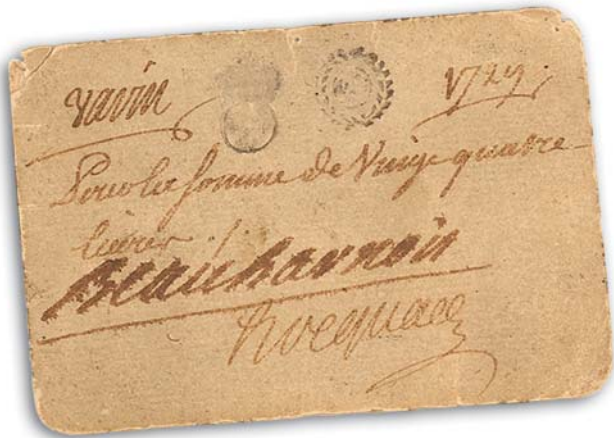 varin 1729.
Pour la somme de Vingt quatre
livres ./.
Beauharnois
hocquart